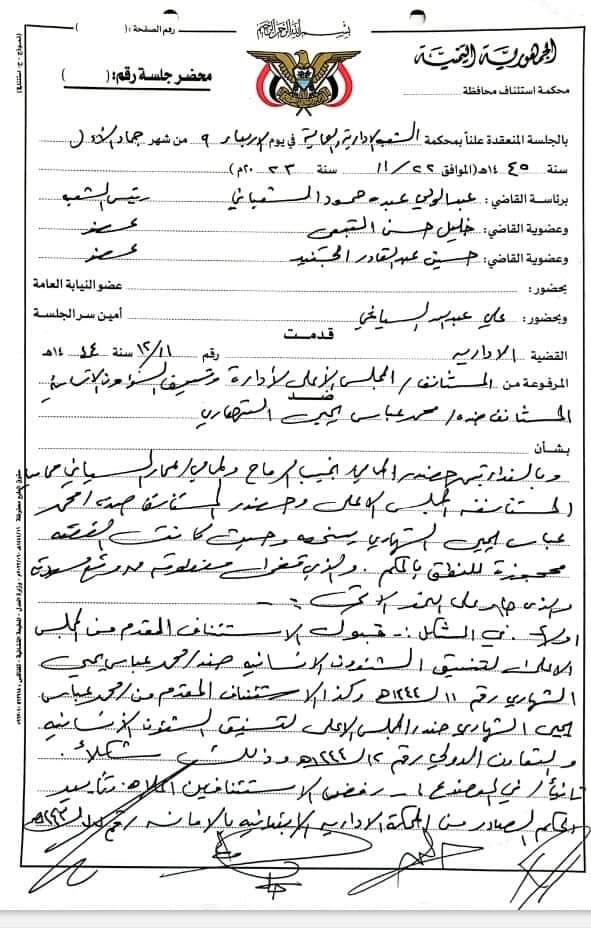 بسم الله الرحمن الرحيم
رقم الصفحة: ( )
الجمهورية اليمنية
محكمة استئناف محافظة
محضر جلسة رقم: ( )
بالجلسة المنعقدة علناً بمحكمة الشعبة الادارية في يوم الاربعاء ٩ من شهر جماد الأول
سنة ١٤٤٥هـ (الموافق ٢٢/١١ سنة ٢٠٢٣م)
برئاسة القاضي: عبدالولي عبده حمود الشعباني رئيس الشعبة
وعضوية القاضي: خليل حسن عضو
وعضوية القاضي: حسين عبدالقادر الجنيد عضو
بحضور: عضو النيابة العامة
وبحضور: علي عبدالله السياغي أمين سر الجلسة
قدمت
القضية الادارية رقم ١٢/١١ سنة ١٤٤٤هـ
المرفوعة من المستأنف/ المجلس الأعلى لأدارة وتنسيق الشؤون الانسانية
ضد
المستأنف ضده/ محمد عباس يحيى الشهاري
بشأن
وبالنداء تبين حضور المحامي نجيب والمحامي/ عمار السياني محاميا
المستأنفة المجلس الاعلى وحضور المستأنف ضده/ محمد
عباس يحيى الشهاري بشخصه وحيث كانت القضية
محجوزة للنطق بالحكم والذي
والذي جاء على النحو الاتي:-
اولاً: في الشكل:- قبول الاستئناف المقدم من المجلس
الاعلى لتنسيق الشئون الانسانيه ضد/ محمد عباس يحيى
الشهاري رقم ١١ لـ١٤٤٤هـ وكذا الاستئناف المقدم من/ محمد عباس
يحيى الشهاري ضد المجلس الاعلى لتنسيق الشؤون الانسانيه
والتعاون الدولي رقم ١٢ لـ١٤٤٤هـ وذلك شكلاً.
ثانياً/ في الموضوع: ١- رفض الاستئنافين تأييد
الحكم الصادر من المحكمة الادارية الابتدائية بالامانه رقم